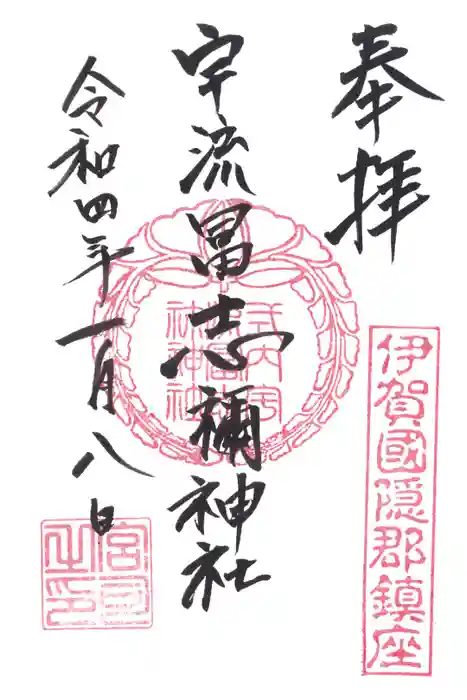 奉拝
伊賀國隠郡鎮座
宇流冨志禰神社
令和四年一月八日
宮司之印